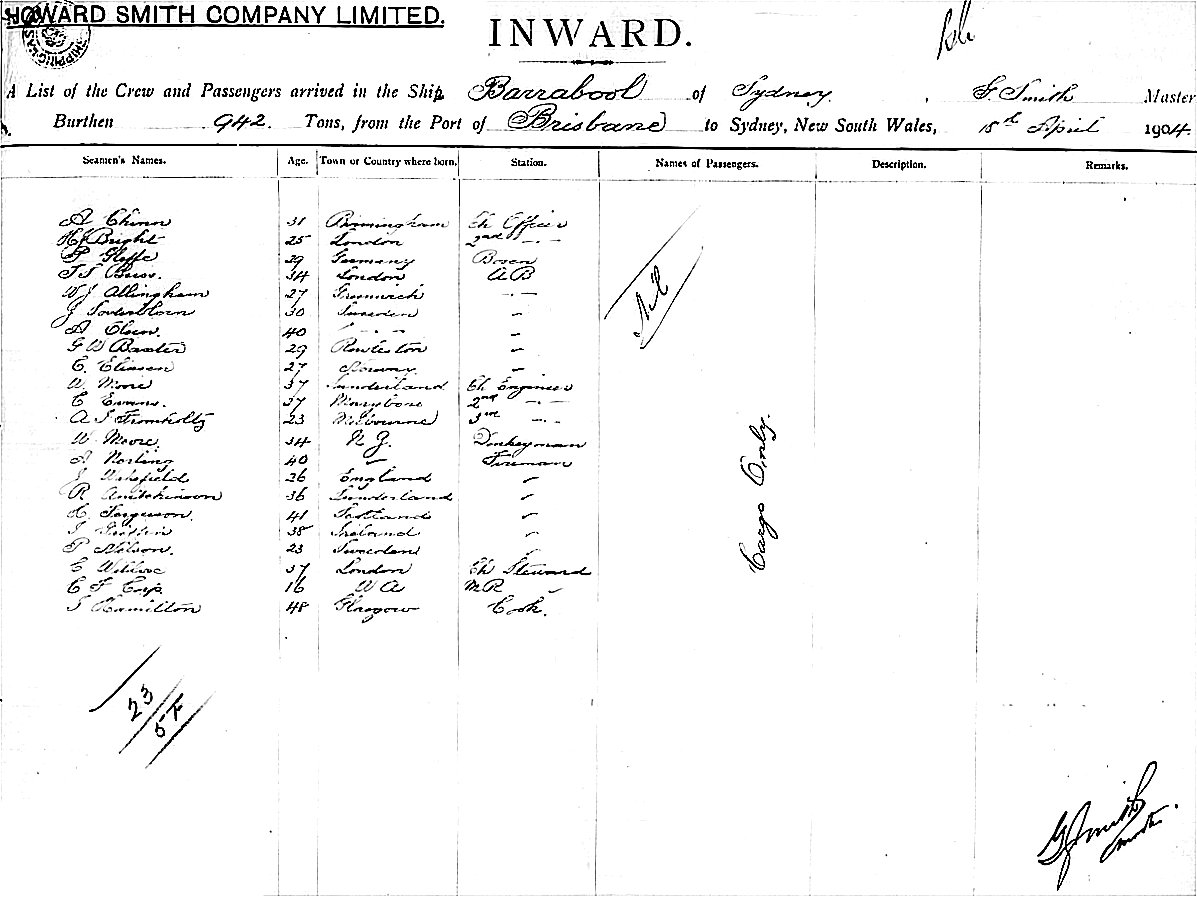 HOWARD SMITH COMPANY LIMITED.
INWARD.
A List of the Crew and Passengers arrived in the Ship Barrabool of Sydney, Smith Master
Burthen 942 Tons, from the Port of Brisbane to Sydney, New South Wales, 18th April 1904.
Seamen's Names. Age. Town or Country where born. Station. Names of Passengers. Description. Remarks.
A Chinn 31 Birmingham Ch Officer
H Bright 25 London 2nd " - -
29 Germany Bosen
34 London A B
W J Allingham 27 Greenwich - -
J 30 Sweden "
A Olsen. 40 " - - "
G W Baxter 29 "
C. Eliasen 27 Norway. "
W. Moore 37 Sunderland Ch Engineer
C Evans. 27 Marybone 2nd - -
A J Fromholtz 23 Melbourne 3rd - -
W. Moore. 34 N Z. Donkeyman
Norling 40 " Fireman
J Wakefield 26 England "
R 36 Sunderland "
Ferguson. 41 Scotland "
38 Ireland "
P Nelson. 23 Sweden "
C 37 London Ch Steward
C F 16 W A M R "
Hamilton 48 Glasgow Cook.
Nil
Cargo Only.
23
5F
Smith